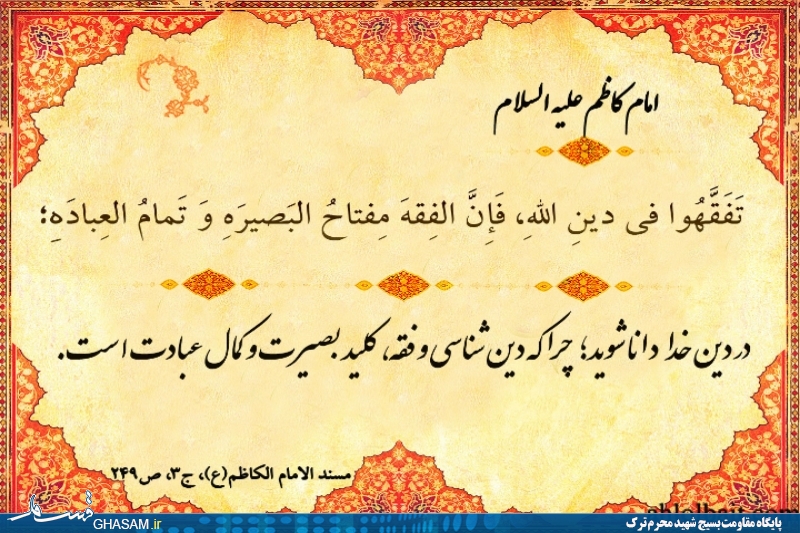 امام کاظم علیه السلام
تَفَقَّهُوا فی دینِ اللهِ، فَإِنَّ الفِقهَ مِفتاحُ البَصیرَهِ وَ تَمامُ العِبادَهِ؛
در دین خدا دانا شوید؛ چرا که دین شناسی و فقه، کلید بصیرت و کمال عبادت است.
مسند الامام الکاظم(ع)، ج۳، ص۲۴۹
پایگاه مقاومت بسیج شهید محرم ترک
GHASAM.ir